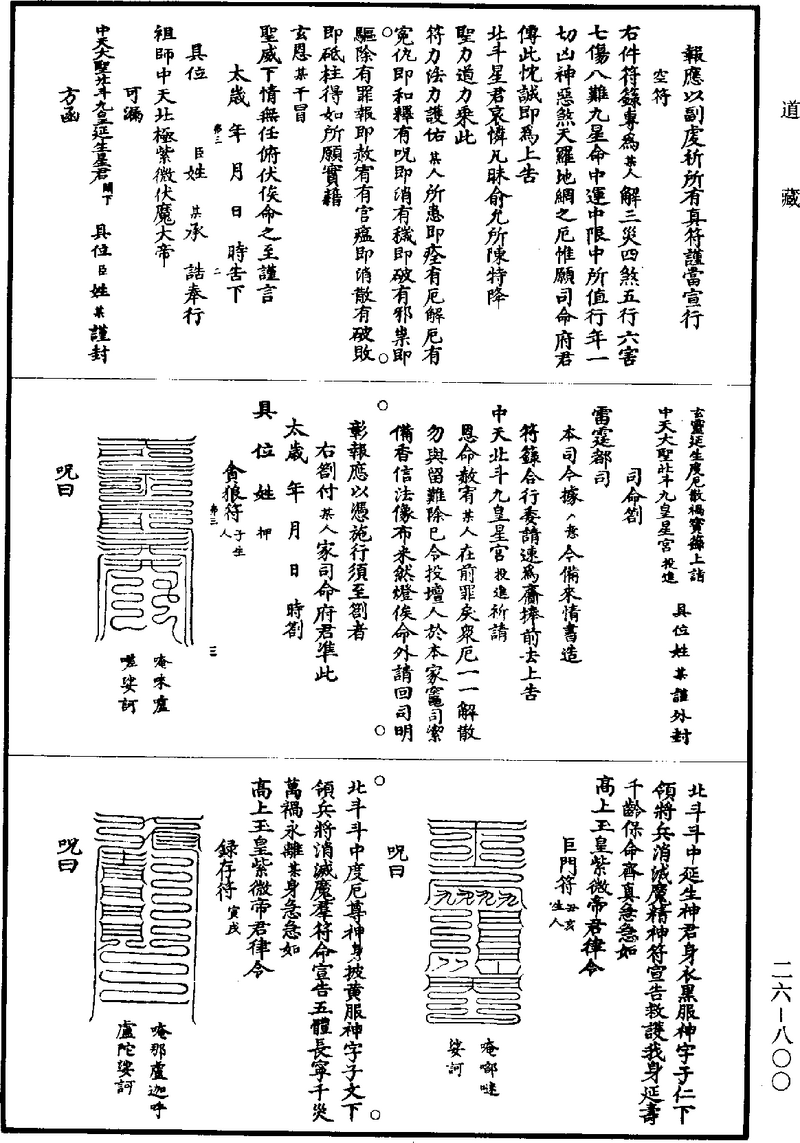 道藏
報應以副虔祈所有真符謹當宣行
空符
右件符籙專為某人解三災四煞五行六害
七傷八難九星命中運中限中所值行年一
切凶神惡煞天羅地網之厄惟願司命府君
傳此忱誠即為上告
北斗星君哀憐凡昧俞允所陳特降
聖力道力乘此
符力法力護佑某人所患即痊有厄解厄有
冤仇即和釋有呪即消有穢即破有邪祟即
驅除有罪報即赦宥有官瘟即消散有破敗
即砥柱得如所願實藉
玄恩某干冒
聖威下情無任俯伏俟命之至謹言
太歲年月日時告下
具位臣姓某承誥奉行
祖師中天北極紫微伏魔大帝
可漏
中天大聖北斗九皇延生星君閣下具位臣姓某謹封
方函
玄靈延生度厄散禍寶籙上詣
中天大聖北斗九皇星宮投進具位姓某謹外封
司命劄
雷霆都司
本司今據入意今備來情書造
符籙合行委請速為齎捧前去上告
中天北斗九皇星宮投進祈請
恩命赦宥某人在前罪矣衆厄一一解散
勿與留難除已令投壇人於本家竈司潔
備香信法像布米然燈俟命外請回司明
彰報應以憑施行須至劄者
右劄付某人家司命府君準此
太歲年月日時劄
具位姓押
貪狼符子生人
唵咪盧
㗭娑訶
呪曰
北斗斗中延生神君身衣黑服神字子仁下
領將兵消滅魔精神符宣告救護我身延壽
千齡保命齊真急急如
高上玉皇紫微帝君律令
巨門符丑亥生人
唵啷噠
娑訶
呪曰
北斗斗中度厄尊神身披黄服神字子文下
領兵將消滅魔羣符命宣告五體長寧千災
萬禍永離某身急急如
高上玉皇紫微帝君律令
錄存符寅戌
唵那盧迦呼
盧陀娑訶
呪曰
二六—八〇〇